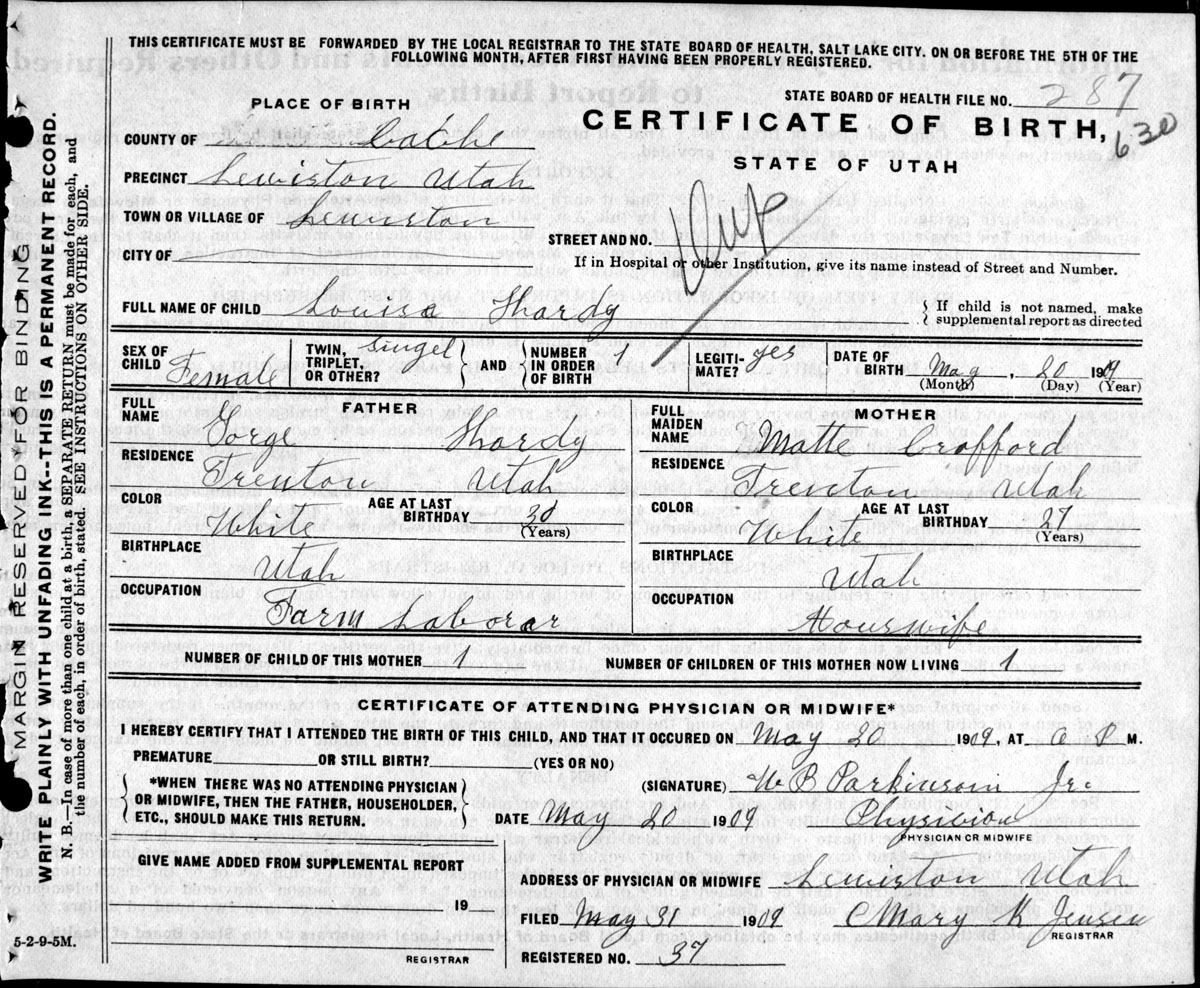 THIS CERTIFICATE MUST BE FORWARDED BY THE LOCAL REGISTRAR TO THE STATE BOARD OF HEALTH, SALT LAKE CITY, ON OR BEFORE THE 5TH OF THE
FOLLOWING MONTH, AFTER FIRST HAVING BEEN PROPERLY REGISTERED.
STATE BOARD OF HEALTH FILE NO. 287
PLACE OF BIRTH
CERTIFICATE OF BIRTH,
630
COUNTY OF Cache
STATE OF UTAH
PRECINCT Lewiston Utah
TOWN OR VILLAGE OF Lewiston
STREET AND NO.
CITY OF
If in Hospital or other Institution, give its name instead of Street and Number.
FULL NAME OF CHILD Louisa Hardy
If child is not named, make
supplemental report as directed
SEX OF CHILD Female
TWIN, TRIPLET, OR OTHER? Singel
AND
NUMBER IN ORDER OF BIRTH 1
LEGITI-MATE? yes
DATE OF BIRTH May, 20 1909
(Month) (Day) (Year)
FATHER
FULL NAME Gorge Hardy
RESIDENCE Trenton Utah
COLOR White
AGE AT LAST BIRTHDAY 30 (Years)
BIRTHPLACE Utah
OCCUPATION Farm Laborar
MOTHER
FULL MAIDEN NAME Matte Crofford
RESIDENCE Trenton Utah
COLOR White
AGE AT LAST BIRTHDAY 27 (Years)
BIRTHPLACE Utah
OCCUPATION Hourswife
NUMBER OF CHILD OF THIS MOTHER 1
NUMBER OF CHILDREN OF THIS MOTHER NOW LIVING 1
CERTIFICATE OF ATTENDING PHYSICIAN OR MIDWIFE*
I HEREBY CERTIFY THAT I ATTENDED THE BIRTH OF THIS CHILD, AND THAT IT OCCURED ON May 20 1909, AT P M.
PREMATURE OR STILL BIRTH? (YES OR NO)
*WHEN THERE WAS NO ATTENDING PHYSICIAN
OR MIDWIFE, THEN THE FATHER, HOUSEHOLDER,
ETC., SHOULD MAKE THIS RETURN.
(SIGNATURE) W B Parkinson Jr.
DATE May 20 1909 Physicion
PHYSICIAN OR MIDWIFE
GIVE NAME ADDED FROM SUPPLEMENTAL REPORT
19
REGISTRAR
ADDRESS OF PHYSICIAN OR MIDWIFE Lewiston Utah
FILED May 31 1909 Mary K Jensen
REGISTRAR
REGISTERED NO. 37
5-2-9-5M.
MARGIN RESERVED FOR BINDING
WRITE PLAINLY WITH UNFADING INK--THIS IS A PERMANENT RECORD.
N. B.—In case of more than one child at a birth, a SEPARATE RETURN must be made for each, and
the number of each, in order of birth, stated. SEE INSTRUCTIONS ON OTHER SIDE.